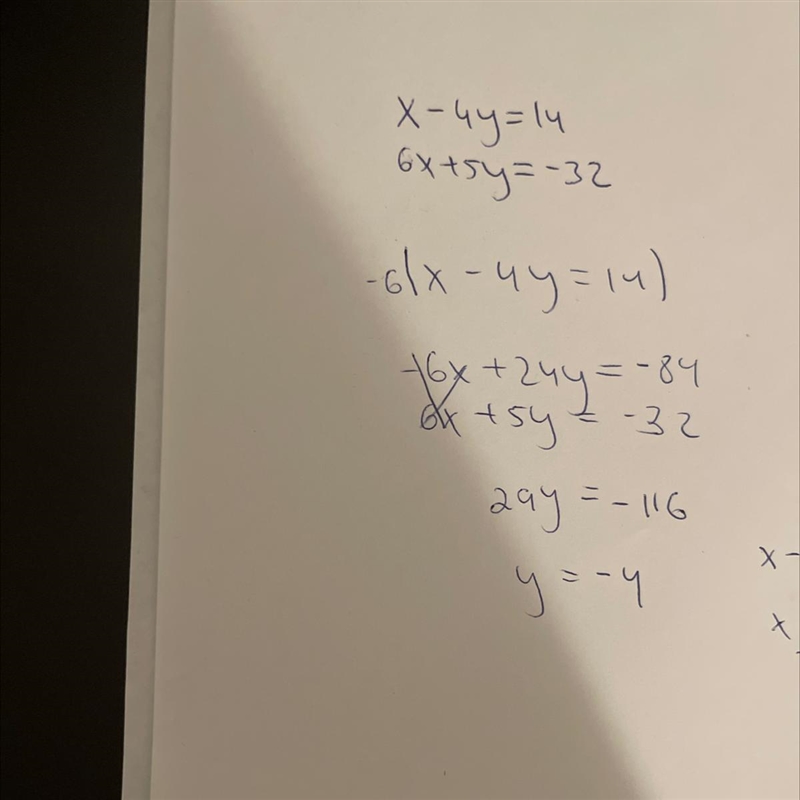 x - 4y = 14
6x + 5y = -32
-6(x - 4y = 14)
-6x + 24y = -84
6x + 5y = -32
29y = -116
y = -4
x -
x